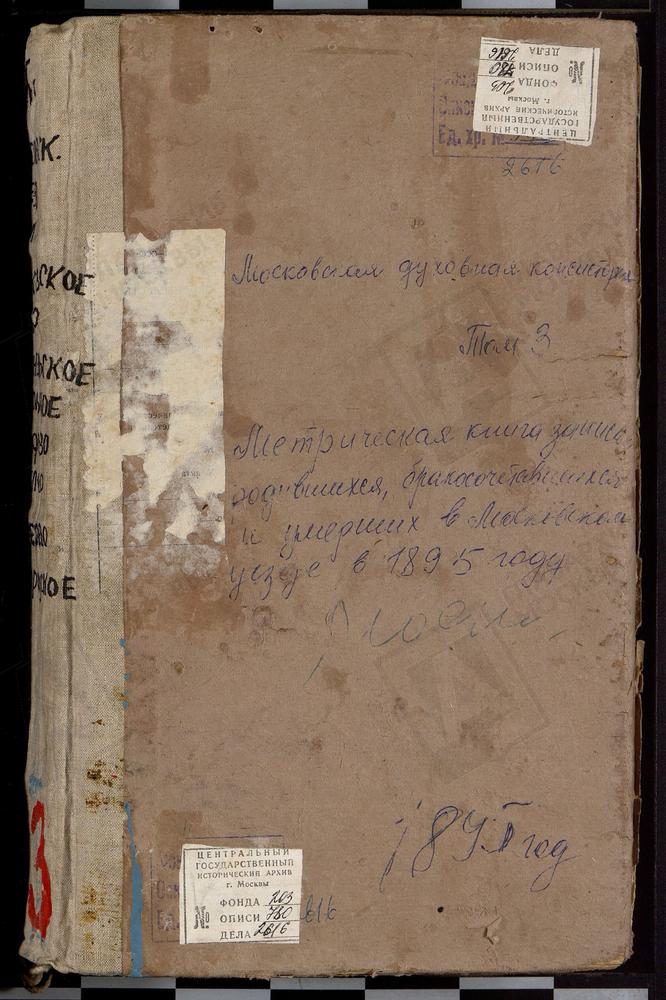 ЦЕНТРАЛЬНЫЙ
ГОСУДАРСТВЕННЫЙ
ИСТОРИЧЕСКИЙ АРХИВ
г. Москвы
ФОНДА 203
№ ОПИСИ 780
ДЕЛА 2616
Ед. хр. №
2616
Московская духовная консистория
Том 3
Метрическая книга записи
родившихся, бракосочетавшихся
и умерших в Московском
уезде в 1895 году
1895 год
СКОЕ
СКОЕ
НОЕ
СКОЕ
3
ЦЕНТРАЛЬНЫЙ
ГОСУДАРСТВЕННЫЙ
ИСТОРИЧЕСКИЙ АРХИВ
г. Москвы
ФОНДА 203
№ ОПИСИ 780
ДЕЛА 2616